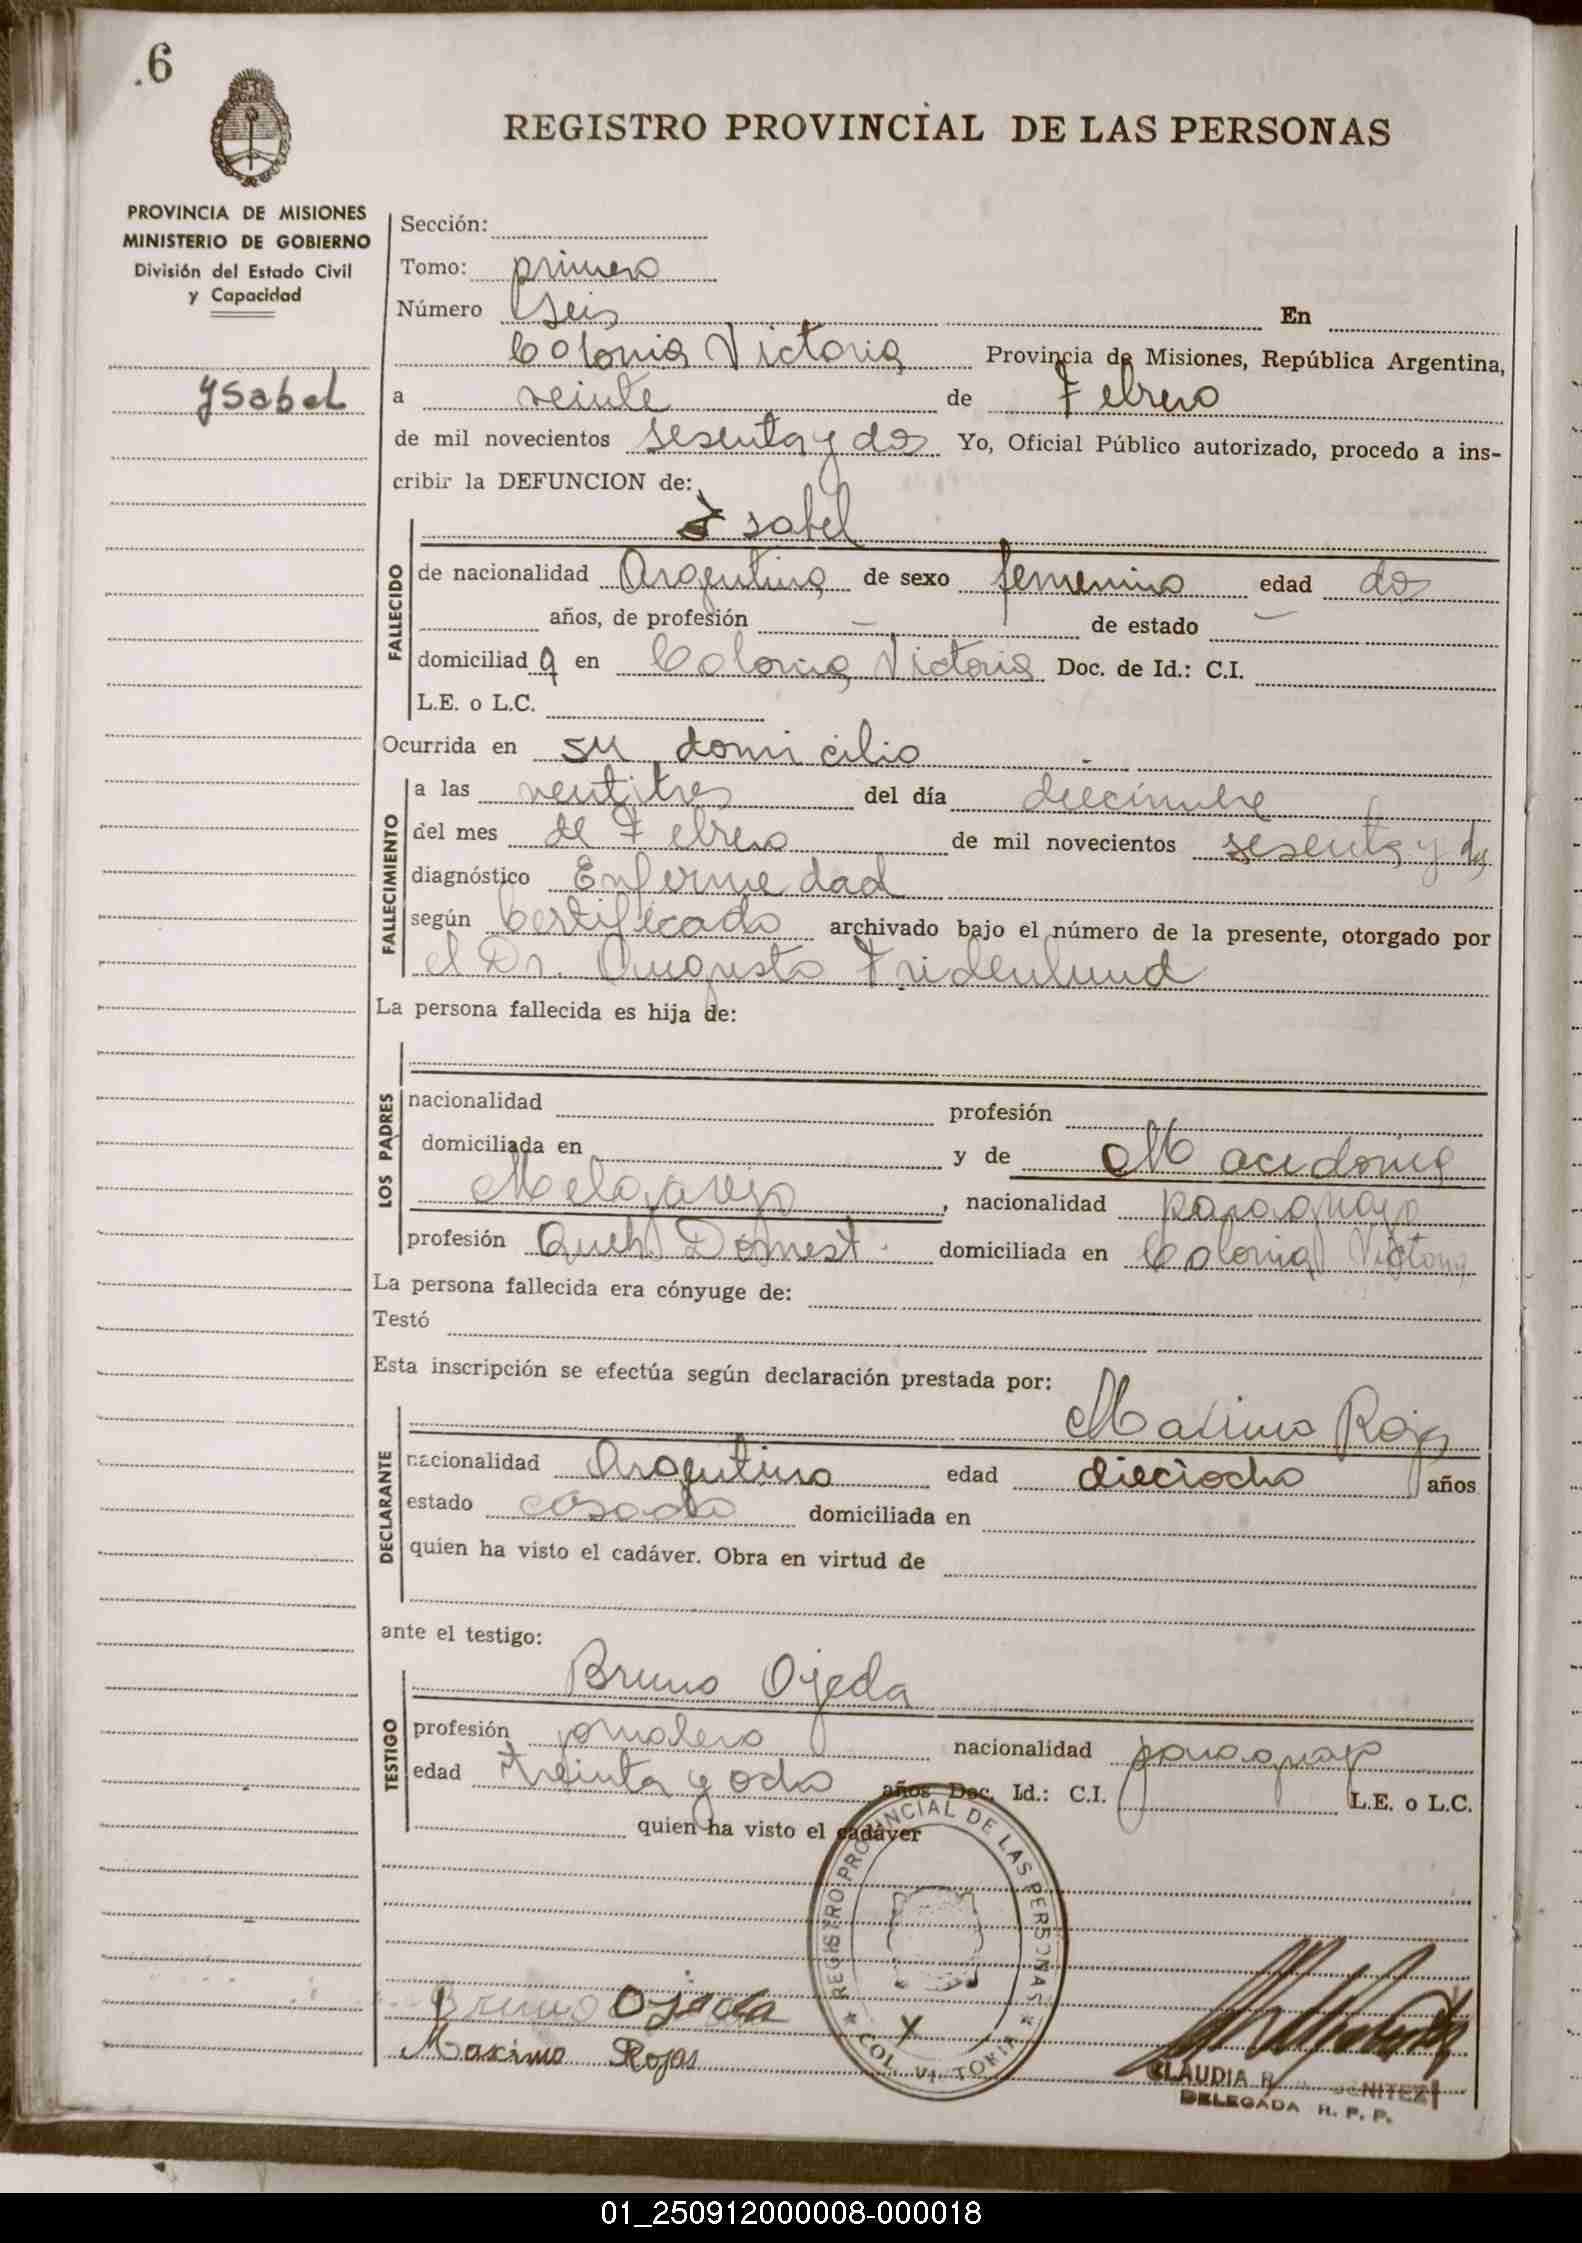 6
REGISTRO PROVINCIAL DE LAS PERSONAS
PROVINCIA DE MISIONES
MINISTERIO DE GOBIERNO
División del Estado Civil
y Capacidad
Ysabel
Sección:
Tomo: primero
Número seis En
Colonia Victoria Provincia de Misiones, República Argentina,
a veinte de Febrero
de mil novecientos sesenta y dos Yo, Oficial Público autorizado, procedo a ins-
cribir la DEFUNCION de:
Isabel
FALLECIDO
de nacionalidad Argentina de sexo femenino edad dos
años, de profesión — de estado —
domiciliad a en Colonia Victoria Doc. de Id.: C.I.
L.E. o L.C.
Ocurrida en su domicilio
FALLECIMIENTO
a las ventitres del día diecinuebe
del mes de Febrero de mil novecientos sesenta y dos
diagnóstico Enfermedad
según Certificado archivado bajo el número de la presente, otorgado por
el Dr. Augusto Fridenlund
La persona fallecida es hija de:
LOS PADRES
nacionalidad profesión
domiciliada en y de Macedonia
Melgarejo, nacionalidad paraguaya
profesión Queh. Domest. domiciliada en Colonia Victoria
La persona fallecida era cónyuge de:
Testó
Esta inscripción se efectúa según declaración prestada por:
Maximo Rojas
DECLARANTE
nacionalidad Argentino edad dieciocho años
estado casado domiciliada en
quien ha visto el cadáver. Obra en virtud de
ante el testigo:
Bruno Ojeda
TESTIGO
profesión jornalero nacionalidad paraguayo
edad treinta y ocho años Doc. Id.: C.I. L.E. o L.C.
quien ha visto el cadáver
REGISTRO PROVINCIAL DE LAS PERSONAS
COL. VICTORIA
Bruno Ojeda
Maximo Rojas
CLAUDIA BENITEZ
DELEGADA R. P. P.
01_250912000008-000018